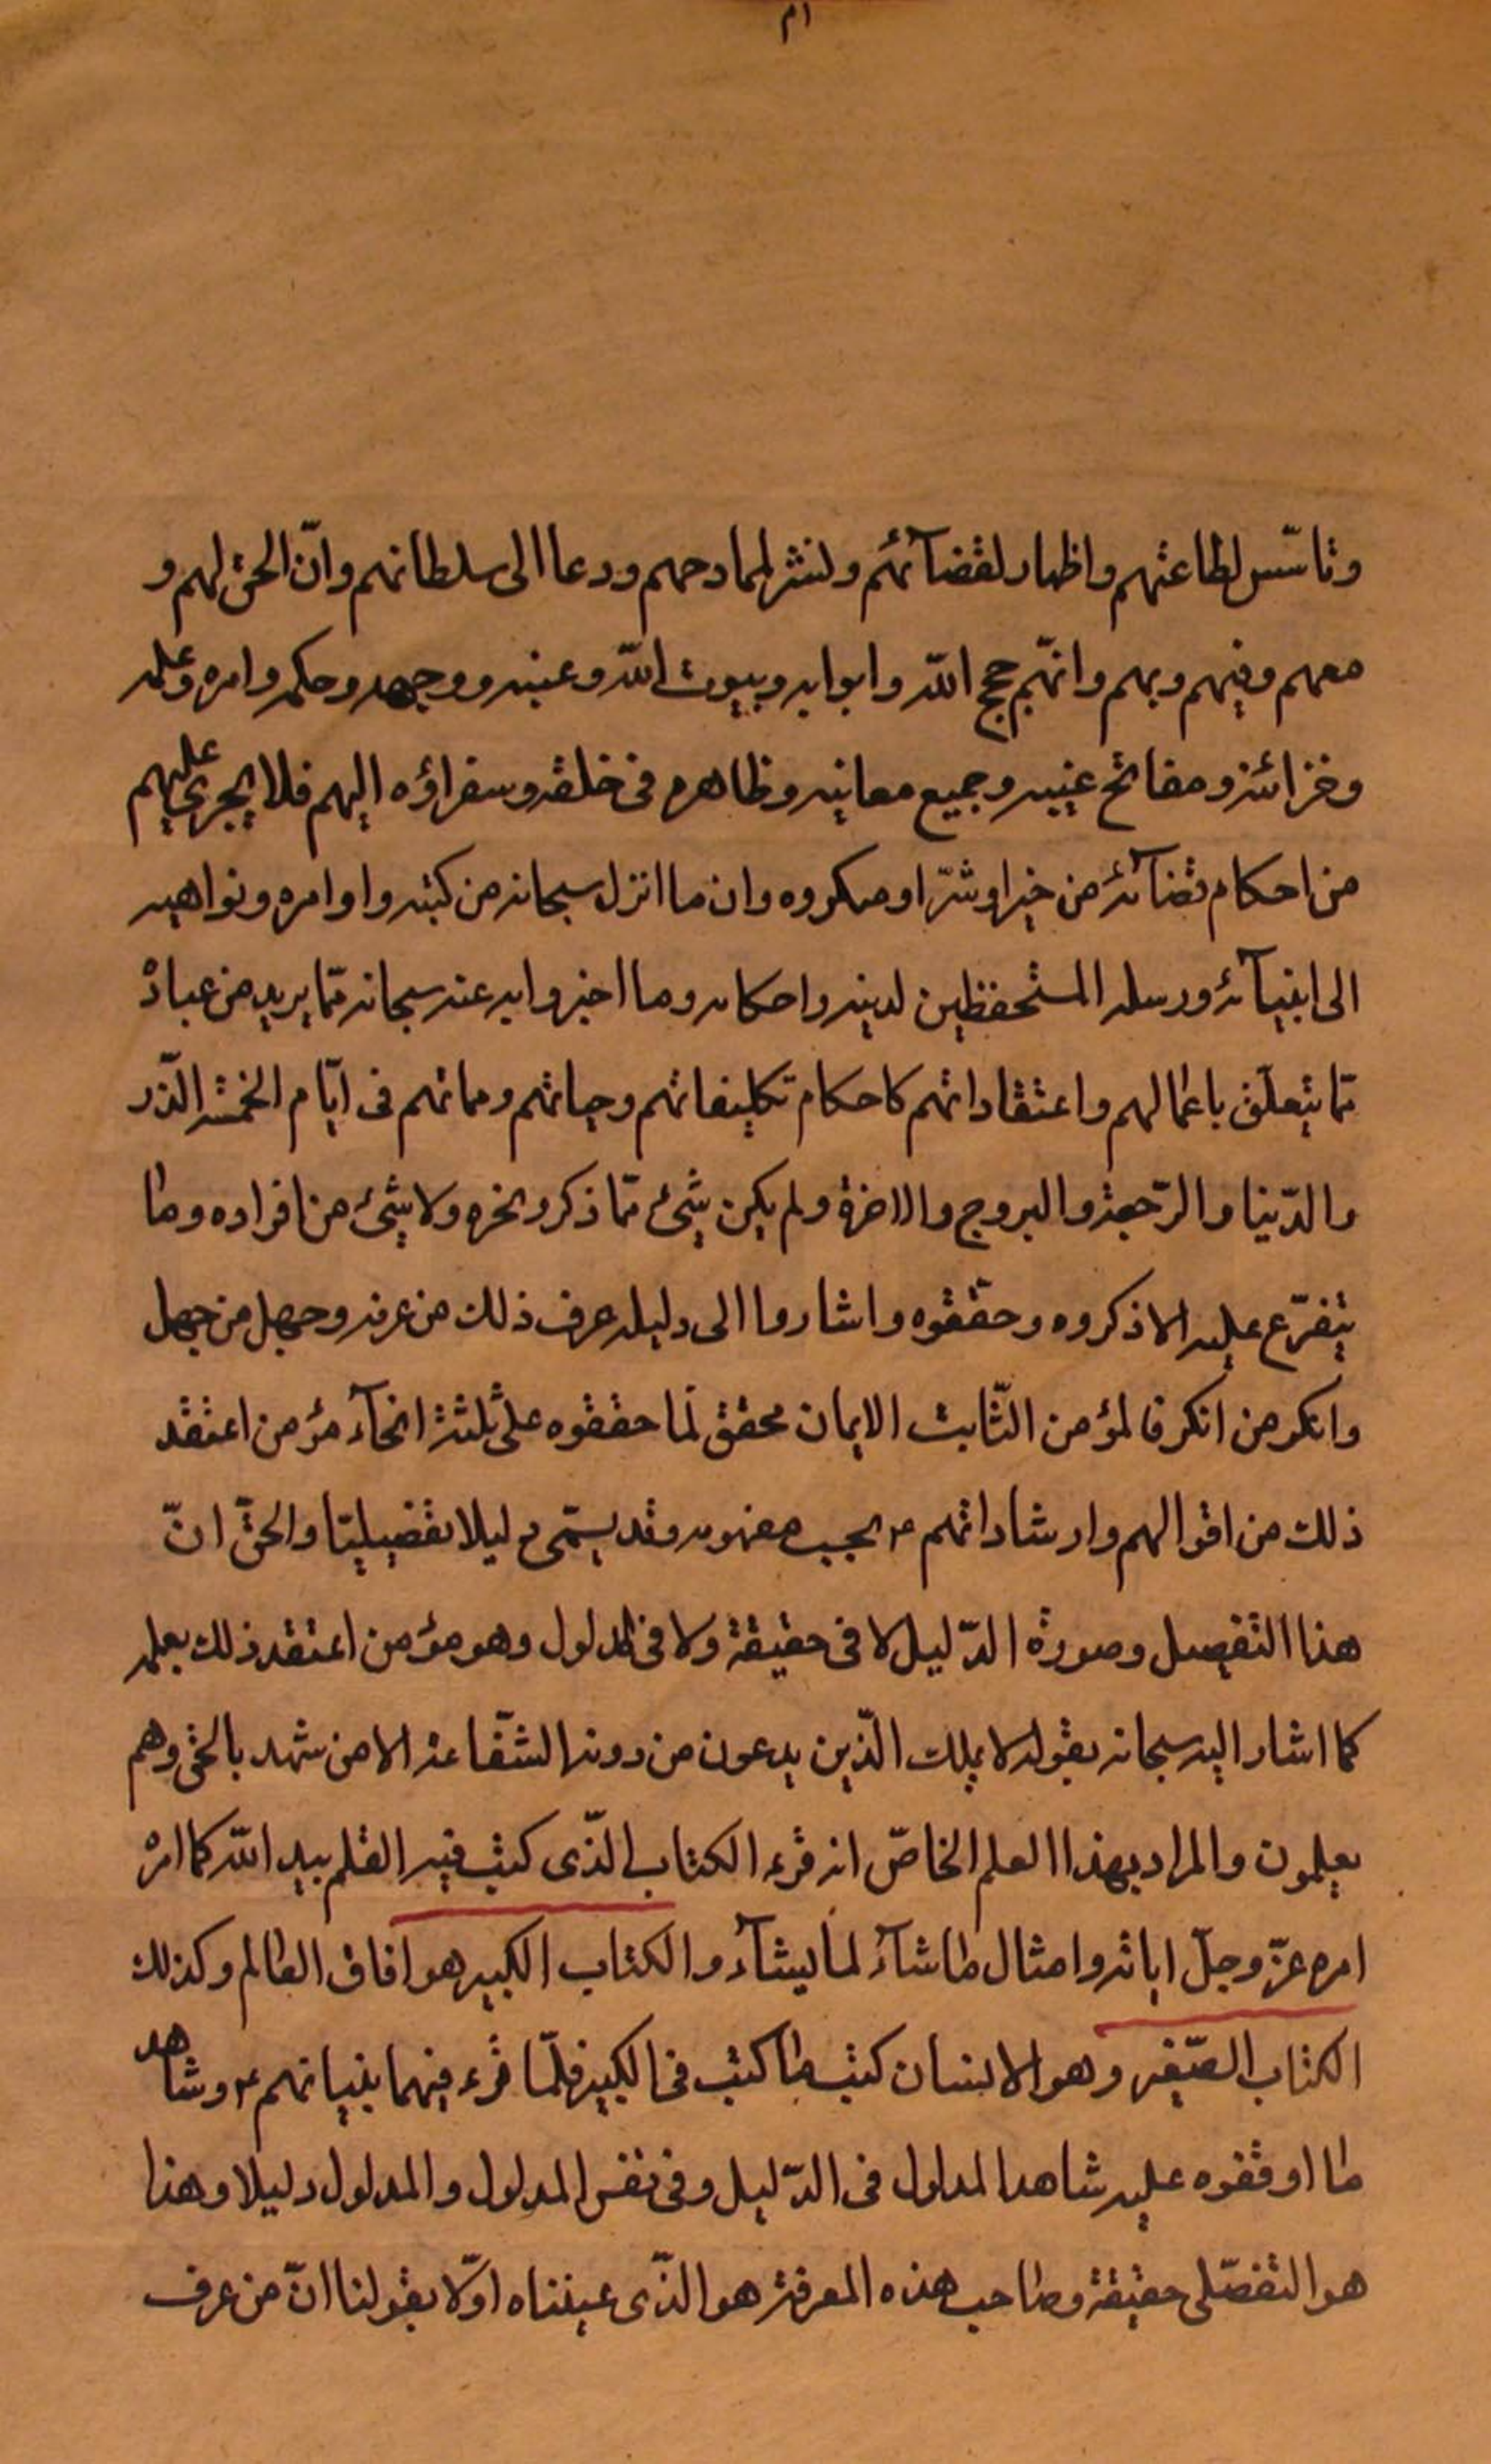 وتاسّس لطاعتهم واظهار لفضآئلهم ولنشر لمحامدهم ودعا الى سلطانهم وانّ الحق لهم و
معهم وفيهم وبهم وانهم حجج الله وابوابه وبيوت الله وعينه ووجهه وحكمه وامره وعلمه
وخزائنه ومفاتح غيبه وجميع معانيه وظاهره فى خلقه وسفراؤه اليهم فلا يجرى عليهم
من احكام قضآئه من خير او شرّ او مكروه وان ما انزل سبحانه من كتبه واوامره ونواهيه
الى انبيآئه ورسله المستحفظين لدينه واحكامه وما اخبروا به عنه سبحانه ممّا يريد من عباده
ممّا يتعلّق باعمالهم واعتقاداتهم كاحكام تكليفاتهم وحياتهم ومماتهم فى ايّام الخمسة الذّر
والدّنيا والرّجعة والبروج والاخرة ولم يكن شئ ممّا ذكر ونحوه ولا شئ من افراده وما
يتفرّع عليه الا ذكروه وحققوه واشاروا الى دليله عرف ذلك من عرفه وجهل من جهل
وانكر من انكر فالمؤمن الثّابت الايمان محقق لما حققوه على ثلثة انحآء مؤمن اعتقد
ذلك من اقوالهم وارشاداتهم ع بحجب مفهومه وقد يسمّى دليلا تفصيليّا والحقّ انّ
هذا التفصيل وصورة الدّليل لا فى حقيقة ولا فى المدلول وهو مؤمن اعتقد ذلك بعلمه
كما اشار اليه سبحانه بقوله لا يملك الّذين يدعون من دونه الشّفاعة الا من شهد بالحق وهم
يعلمون والمراد بهذا العلم الخاصّ انه قرء الكتاب الّذى كتب فيه القلم بيد الله كما امره
امره عزّ وجلّ اياته وامثال ما شآء لما يشآء والكتاب الكبير هو افاق العالم وكذلك
الكتاب الصّغير وهو الانسان كتب ما كتب فى الكبير فلمّا قرء فيهما بنيانهم ع وشاهد
ما اوقفوه عليه شاهد المدلول فى الدّليل وفى نفس المدلول والمدلول دليلا وهذا
هو التفصّلى حقيقة وصاحب هذه المعرفة هو الّذى عيّنناه اوّلا بقولنا انّ من عرف